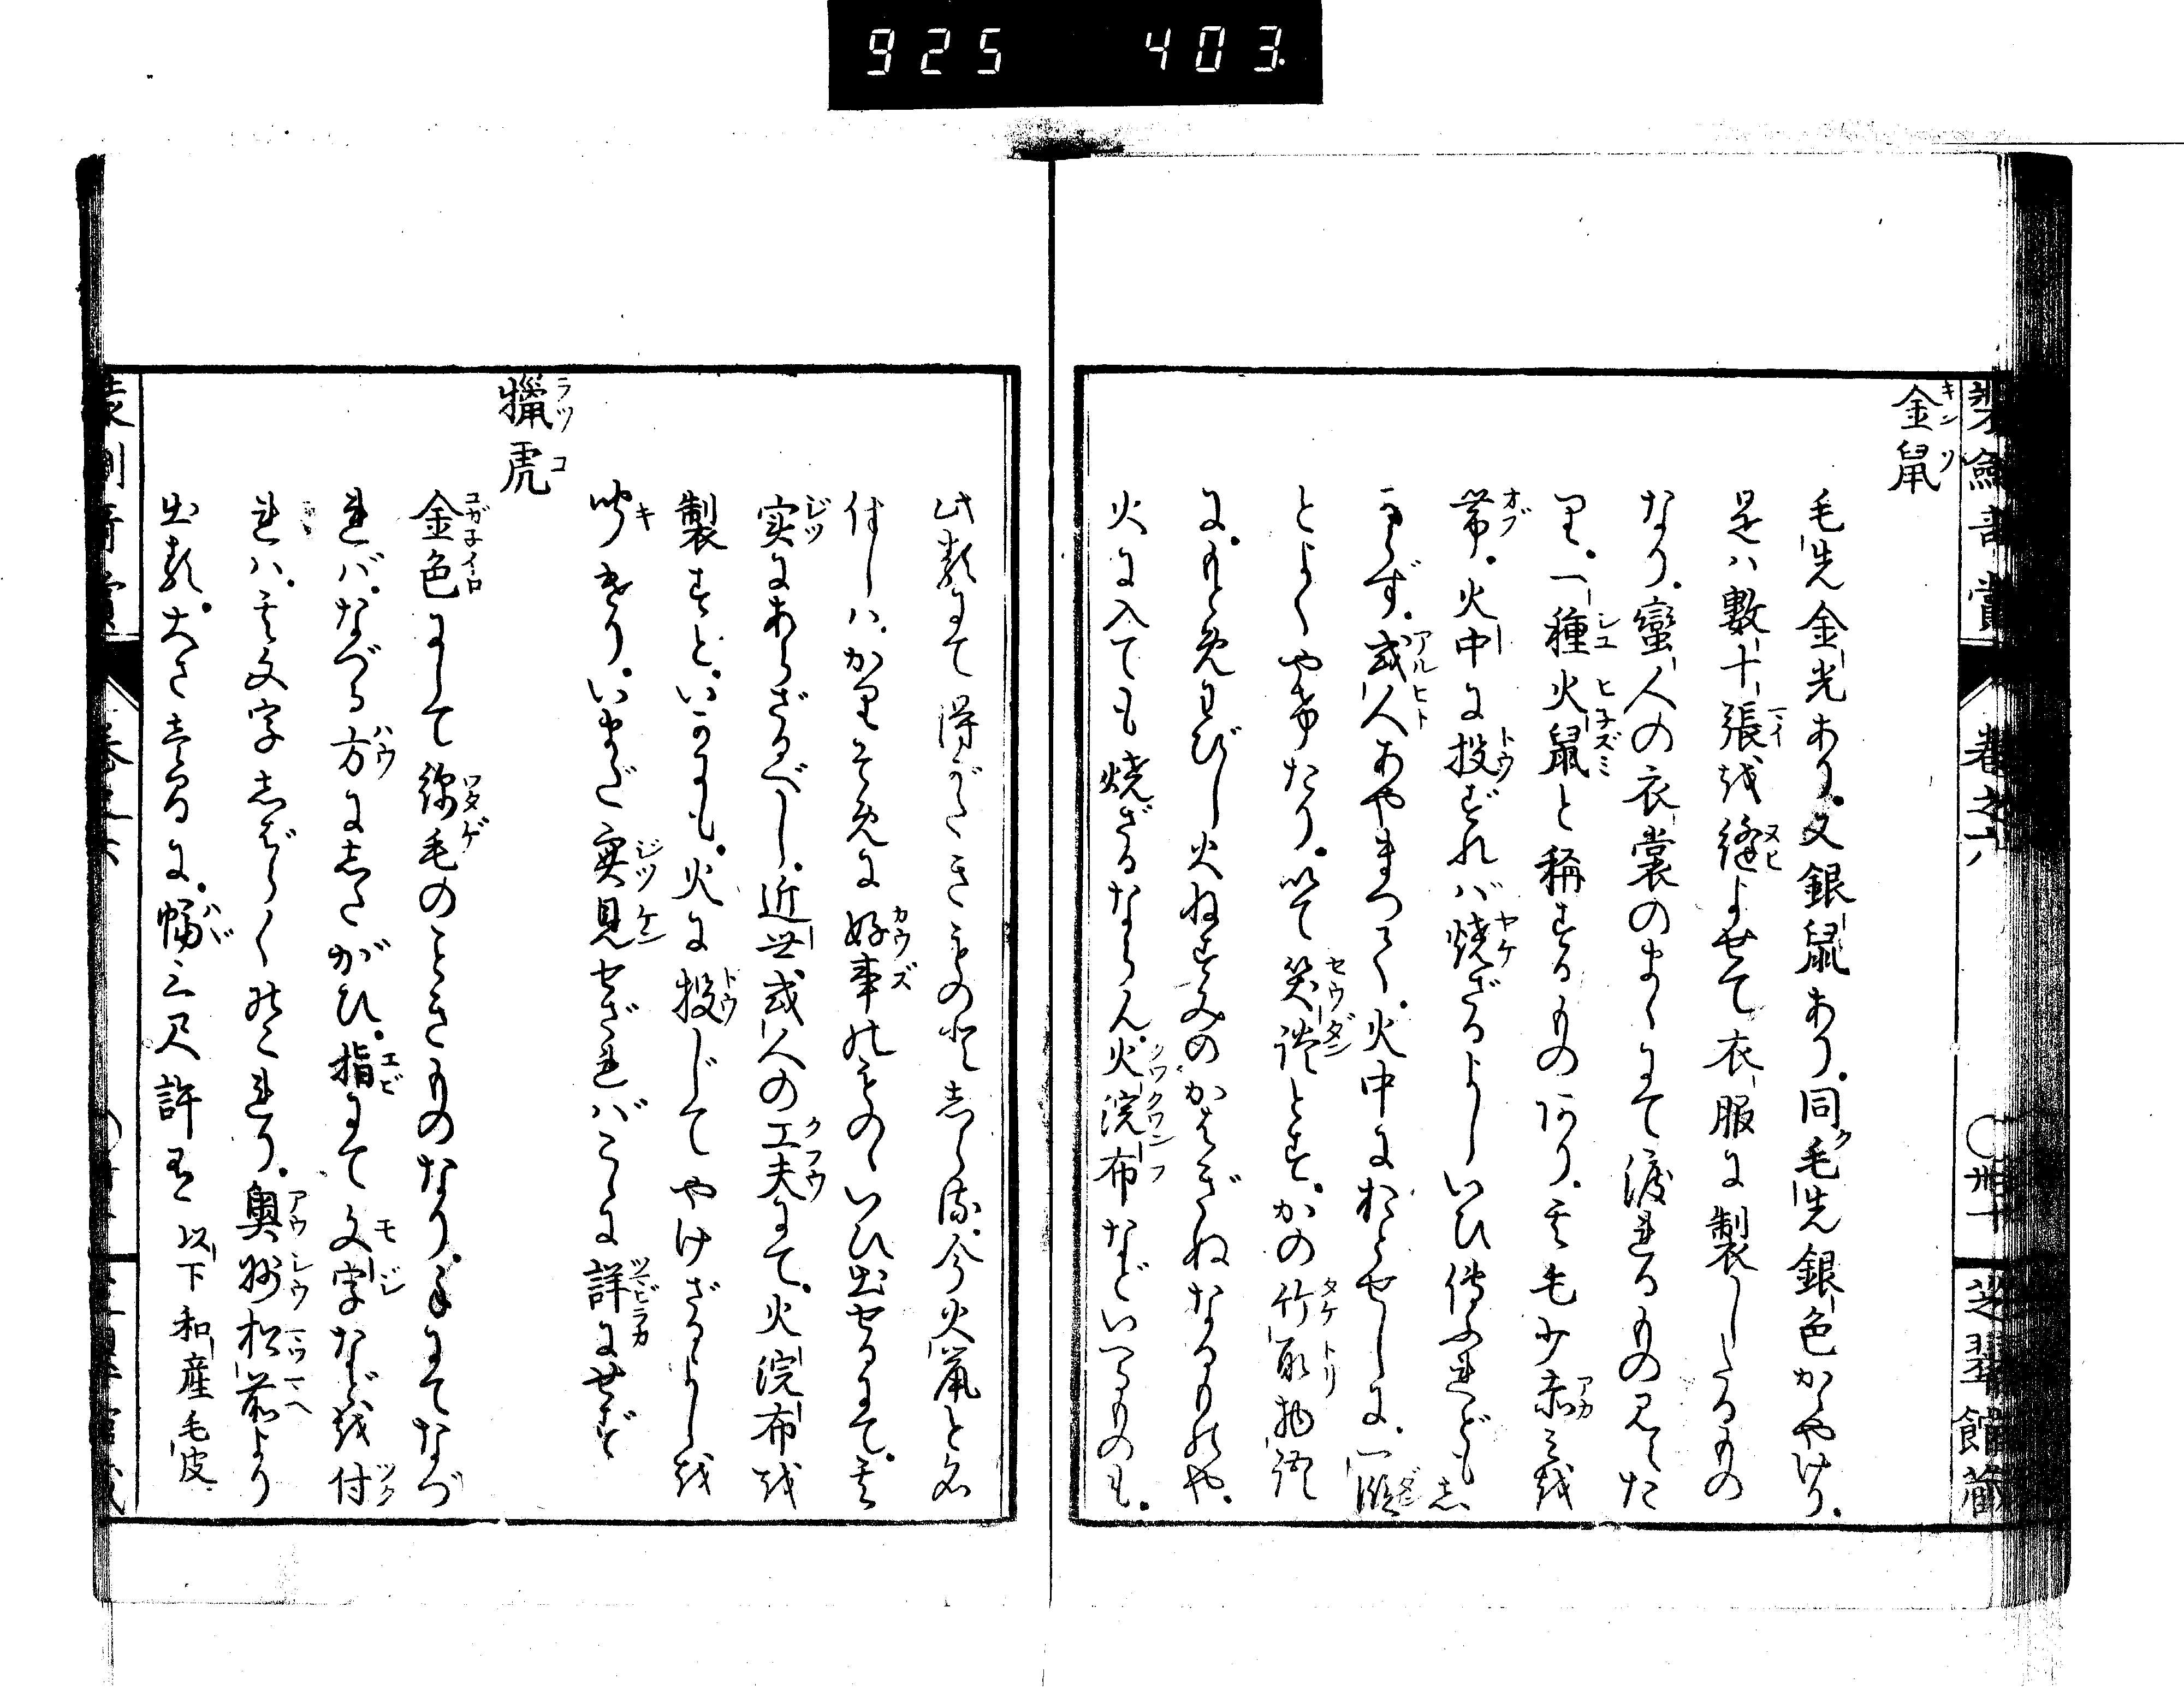 925 403
装劍竒賞 巻之六 ○卅一 芝翠館藏
金鼠
毛先金光あり。又銀鼠あり。同く毛先銀色かゝやけり。
是ハ數十張を縫よせて衣服に製したるもの
なり。蠻人の衣裳のまゝにて渡れるもの見えた
り。一種火鼠と稱するものあり。其毛少赤みを
帯。火中に投ずれバ焼ざるよしいひ傳ふれども
しらず。或人あやまつて。火中におとせしに。一段
とよくやけたり。以て笑談とす。かの竹取物語
に。もとめわびし火ねずみのかはぎぬなるものや。
火に入ても焼ざるならん。火浣布などいへるものも。
此類にて得がたきものと志られ。今火鼠と名
付しハ。かりそめに好事のものゝいひ出せるにて。其
実にあらざるべし。近世或人の工夫にて。火浣布を
製すと。いかにも。火に投じてやけざるよしを
聞けり。いまだ実見せざれバこゝに詳にせず
獵虎
金色にして綿毛のごときものなり。手にてなづ
れバ。なづる方に志たがひ。指にて文字などを付
れハ。其文字志ばらくのこれり。奥州松前より
出る。大さ壱間に。幅三尺許有 以下和産毛皮